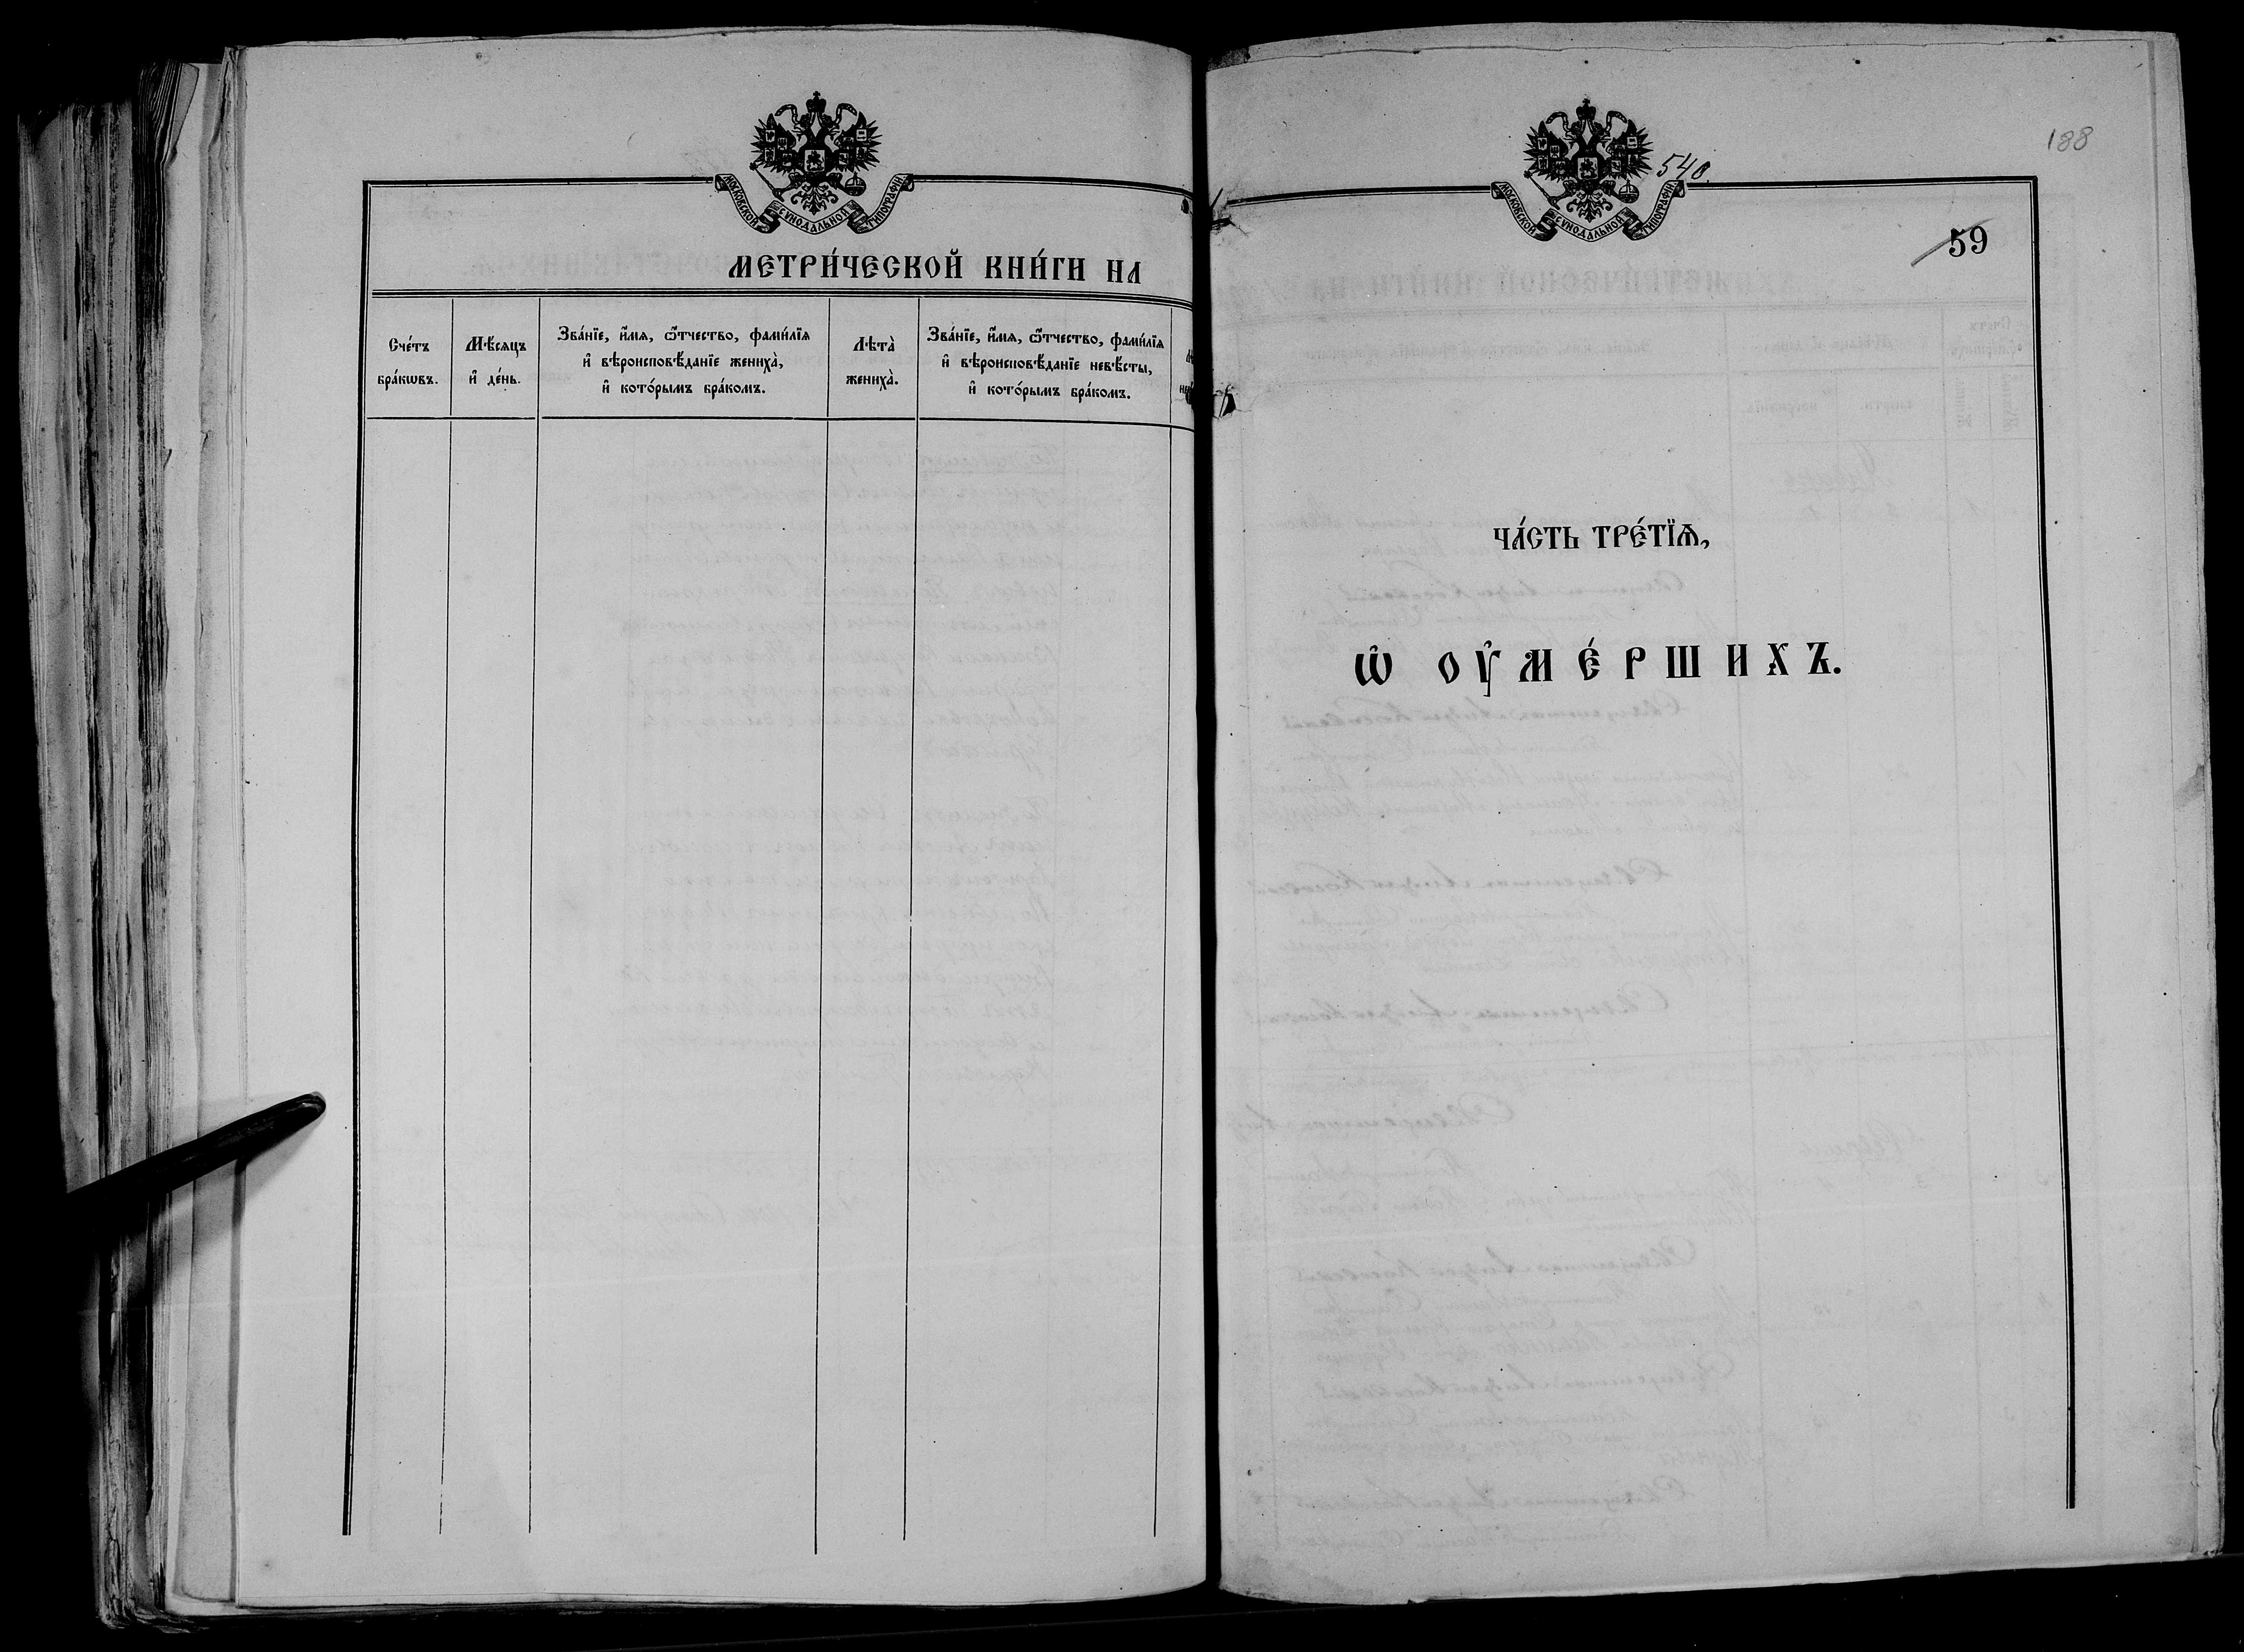 МОСКОВСКОЙ СѴНОДАЛЬНОЙ ТИПОГРАФІИ
МЕТРИ́ЧЕСКОЙ КНИ́ГИ НА
Сче́тъ
бра́кѡвъ.
Мѣ́сяцъ
и҆ де́нь.
Зва́нїе, и҆́мѧ, ѻ҆́тчество, фами́лїѧ
и҆ вѣроисповѣ́данїе женихà,
и҆ кото́рымъ бра́комъ.
Лѣтà
женихà.
Зва́нїе, и҆́мѧ, ѻ҆́тчество, фами́лїѧ
и҆ вѣроисповѣ́данїе невѣ́сты,
и҆ кото́рымъ бра́комъ.
188
540.
МОСКОВСКОЙ СѴНОДАЛЬНОЙ ТИПОГРАФІИ
59
ЧА́СТЬ ТРЕ́ТЇѦ,
Ѡ҆ ОУ҆МЕ́РШИХЪ.